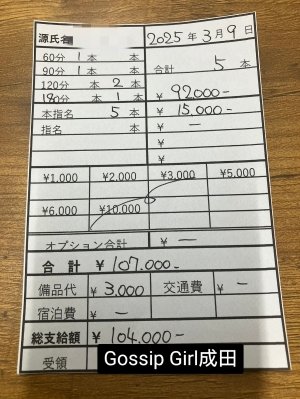 源氏名
2025年 3月 9日
60分 1本 本
90分 1本 本
合計 5本
120分 本 2本
180分 本 1本
¥ 92000-
本指名 5本
¥ 15,000-
指名 本
¥ —
¥
¥
¥1,000 ¥2,000 ¥3,000 ¥5,000
¥6,000 ¥10,000
オプション合計 ¥ —
合計 ¥ 107.000-
備品代 ¥ 3,000 交通費 ¥ -
宿泊費 ¥ —
総支給額 ¥ 104.000-
受領
Gossip Girl成田